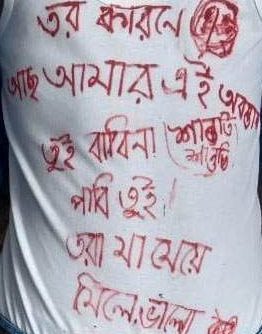 তর কারনে
আছ আমার এই অবস্থা
তুই বাবিনা শান্তি
পাবি তুই।
তরা মা মেয়ে
মিলে ভালা